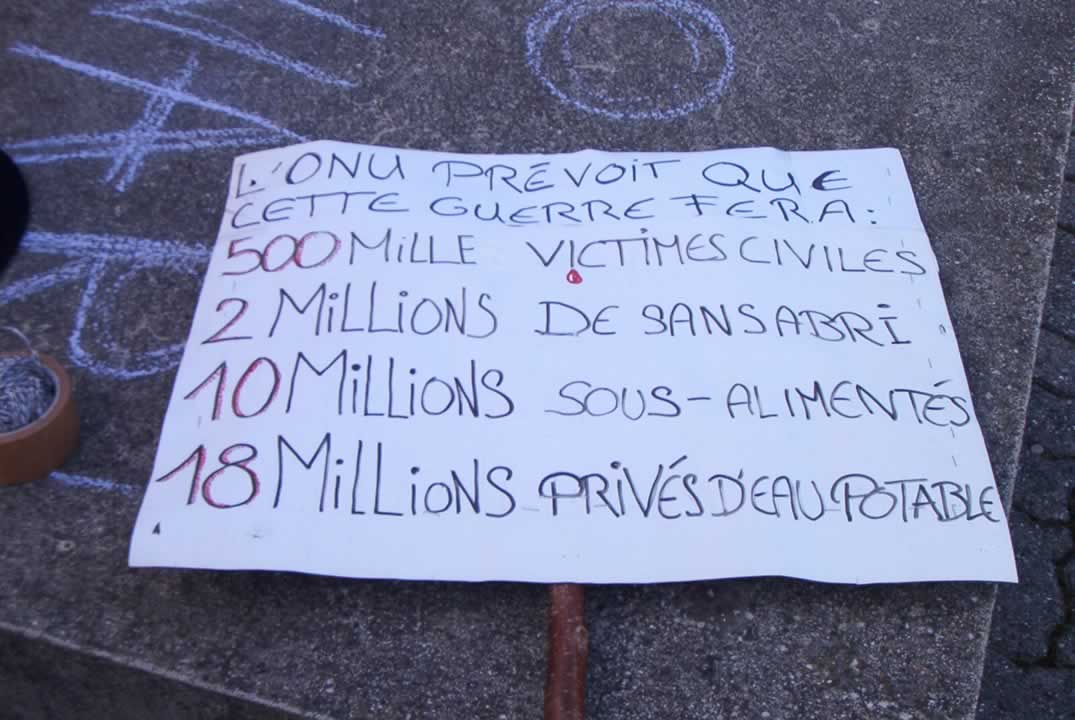 L'ONU PRÉVOIT QUE
CETTE GUERRE FERA:
500 MiLLE VICTIMES CIVILES
2 MiLLiONS DE SANSABRI
10 MiLLiONS SOUS-ALIMENTÉS
18 MiLLiONS PRIVÉS D'EAU POTABLE